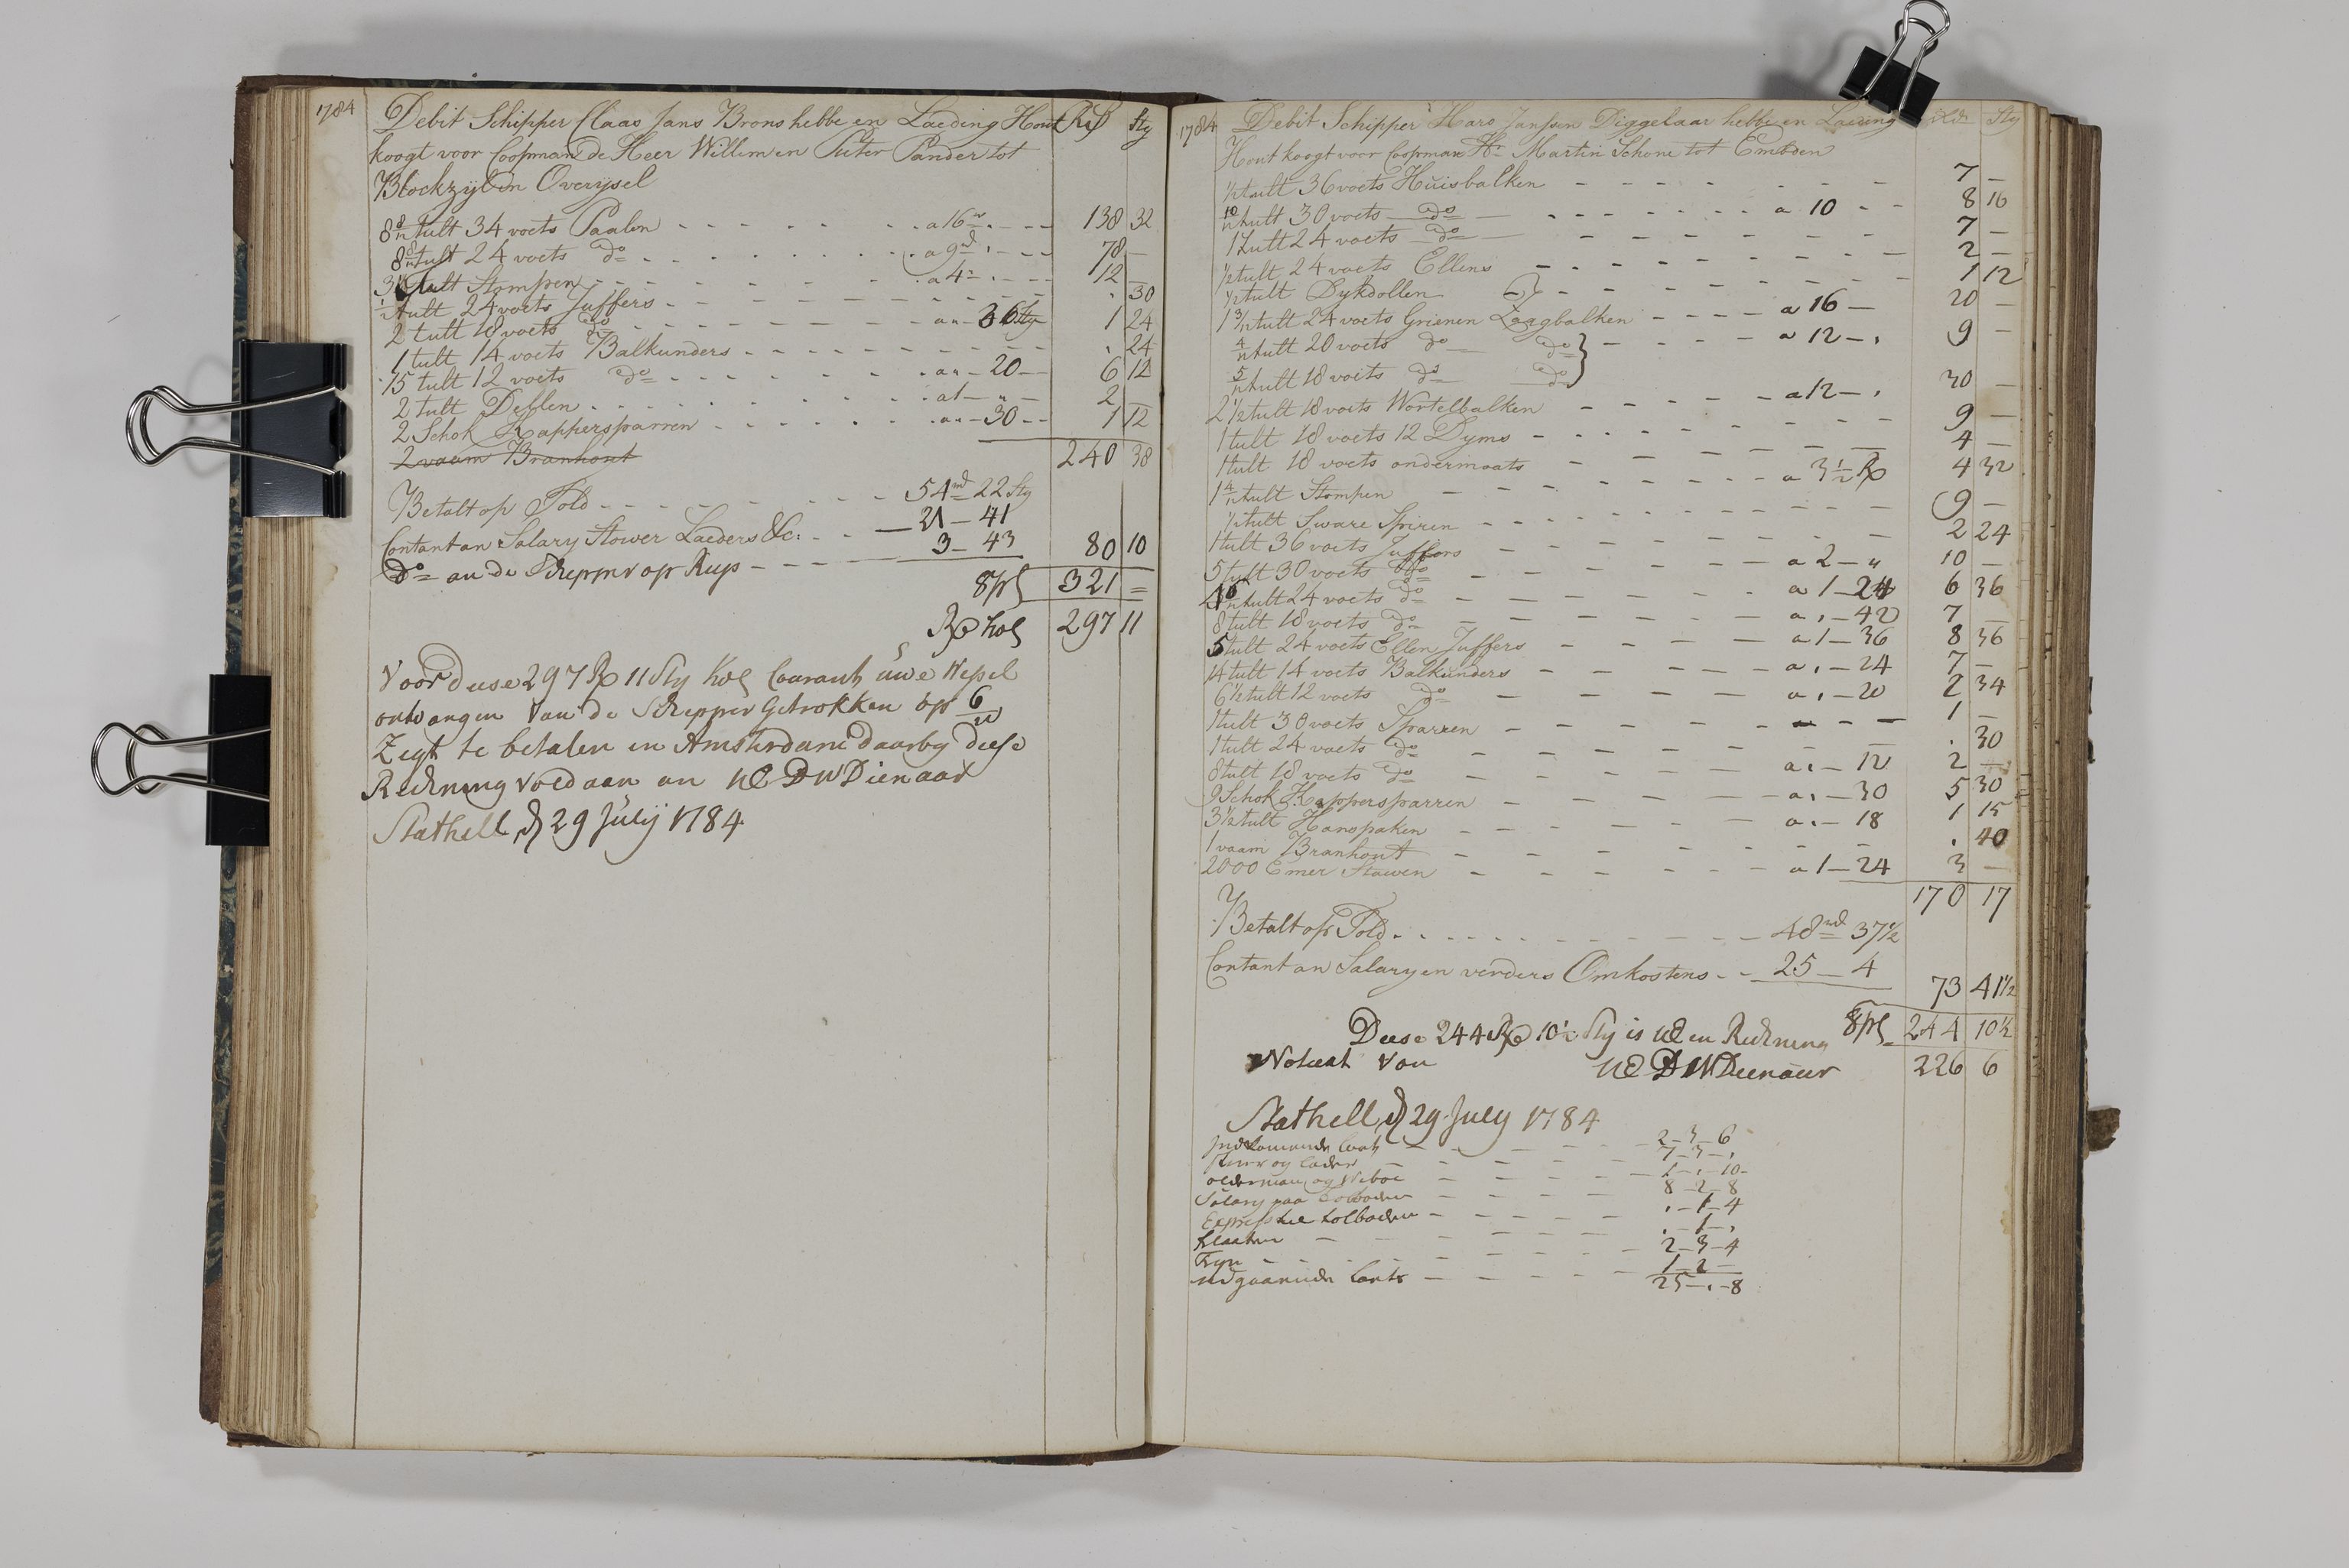 1784 Debit Schipper Claas Jans Brons hebbe en Laeding Hout Rd Sty
koogt voor Coopman de Heer Willem en Pieter Pander tot
Blockzyl in Overijsel
8 8/12 tult 34 voets Paalen a 16 rd 138 32
8 8/12 tult 24 voets do a 9 rd 78 —
3 tult Stompen a 4 12 —
1/2 tult 24 voets Juffers . 30
2 tult 18 voets do a " — 36 Sty 1 24
1 tult 14 voets Balkunders . 24
15 tult 12 voets do a " — 20 6 12
2 tult Dellen a 1 — " — 2 —
2 Schok Kappersparren a " — 30 1 12
2 vaam Branhout
240 38
Betalt op Told 54 rd 22 Sty
Contant an Salary Stower Laeders &c: 21 — 41
do an de Schepper op Reys 3 — 43 80 10
321 =
Rd hol 297 11
Voor deese 297 Rd 11 Sty hol Courant uwe Wessel
ontvangen van de Schepper Getrokken op 6/m
Zegt te betalen in Amsterdam daarby deese
Reckning voldaan an UE DW Dienaar
Stathell d 29 July 1784
1784 Debit Schipper Haro Janssen Diggelaar hebbe en Laeding Rd Sty
Hout koogt voor Coopman Hr Martin Schone tot Embden
1/2 tult 36 voets Huisbalken 7 —
10/12 tult 30 voets do a 10 8 16
1 tult 24 voets do 7 —
1/2 tult 24 voets Ellens 2 —
1/2 tult Dykdollen 1 12
1 3/12 tult 24 voets Grienen Zaagbalken a 16 — 20 —
4/12 tult 20 voets do do a 12 — . 9 —
5/12 tult 18 voets do do
2 1/2 tult 18 voets Wortelbalken a 12 — . 30 —
1 tult 18 voets 12 Dyms 9 —
1 tult 18 voets ondermaats 4 —
1 4/12 tult Stompen a 3 1/2 Rd 4 32
1/2 tult Sware Spiren 9 —
1 tult 36 voets Juffers 2 24
5 tult 30 voets do a 2 — " 10 —
tult 24 voets do a 1 — 24 6 36
8 tult 18 voets do a . — 42 7 —
5 tult 24 voets Ellen Juffers a 1 — 36 8 36
14 tult 14 voets Balkunders a . — 24 7 —
6 1/2 tult 12 voets do a . — 20 2 34
1 tult 30 voets Sparren 1 —
1 tult 24 voets do . 30
8 tult 18 voets do a . — 12 2 —
9 Schok Kappersparren a . — 30 5 30
3 1/2 tult Hanspaken a . — 18 1 15
1 vaam Branhout . 40
2000 Emer Stawen a 1 — 24 3 —
170 17
Betalt op Told 48 rd 37 1/2
Contant an Salary en verders Omkostens 25 — 4
73 41 1/2
Deese 244 Rd 10 1/2 Sty is UE en Reckning 244 10 1/2
Noteert Van UE DW Dienaar 226 6
Stathell d 29 July 1784
Indkomende 2 — 3 — 6
og Lader 7 — 3 — .
olderman og 1 — . — 10
Salary paa 8 — 2 — 8
Expres tolboden . — 1 — 4
. — 1 — .
Fyr 2 — 3 — 4
udgaaende 1 — 2 —
25 — . — 8